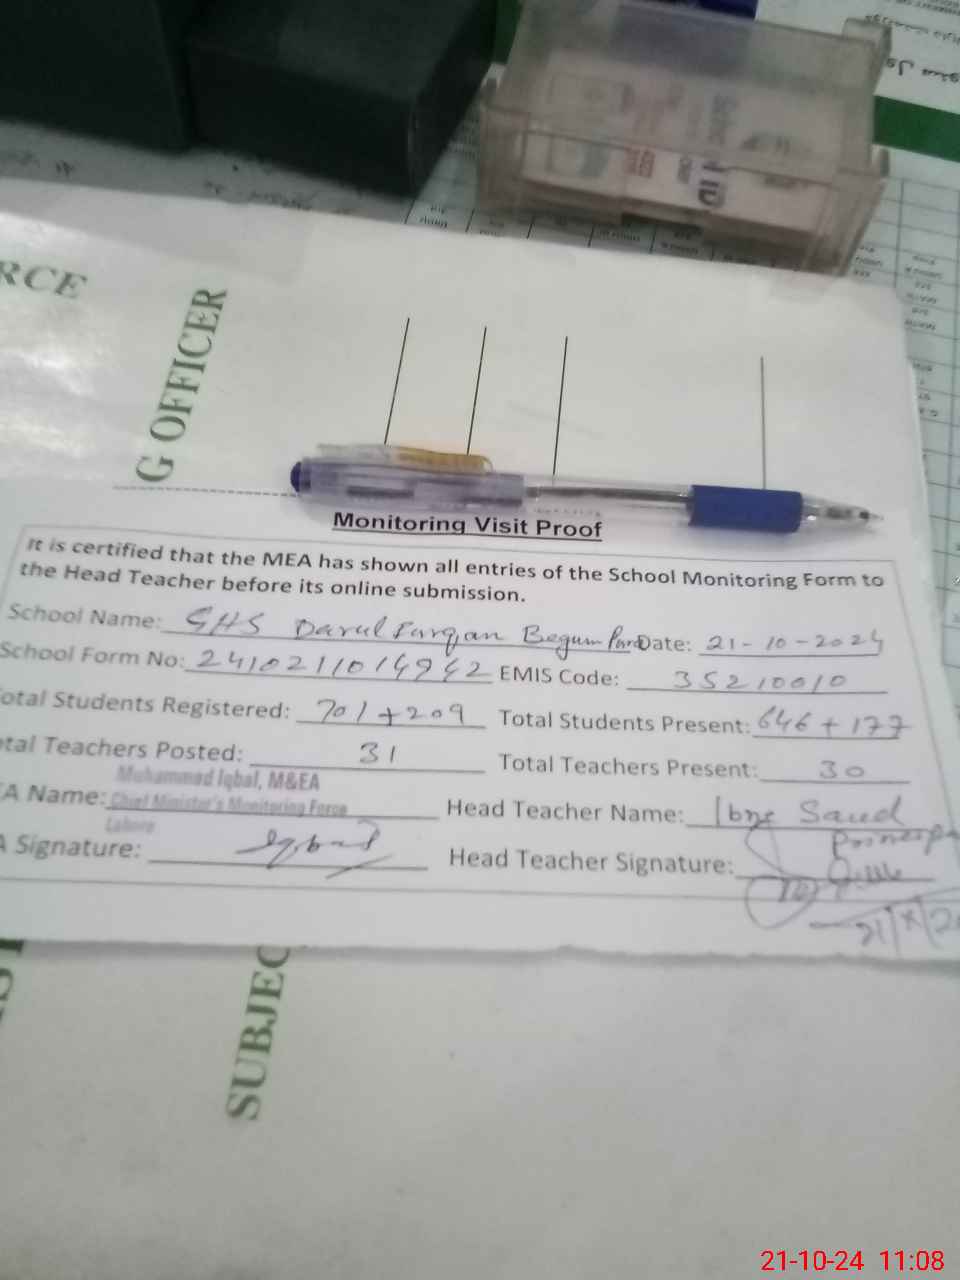 RCE
G OFFICER
Monitoring Visit Proof
It is certified that the MEA has shown all entries of the School Monitoring Form to
the Head Teacher before its online submission.
School Name: GHS Darul Furqan Begum Date: 21-10-2024
School Form No: 2410211014942 EMIS Code: 35210010
otal Students Registered: 701+209 Total Students Present: 646+177
tal Teachers Posted: 31 Total Teachers Present: 30
Muhammad Iqbal, M&EA
A Name: Chief Minister's Monitoring Force Head Teacher Name: Ibne Saud
Lahore
A Signature: Iqbal Head Teacher Signature:
SUBJEC
21-10-24 11:08